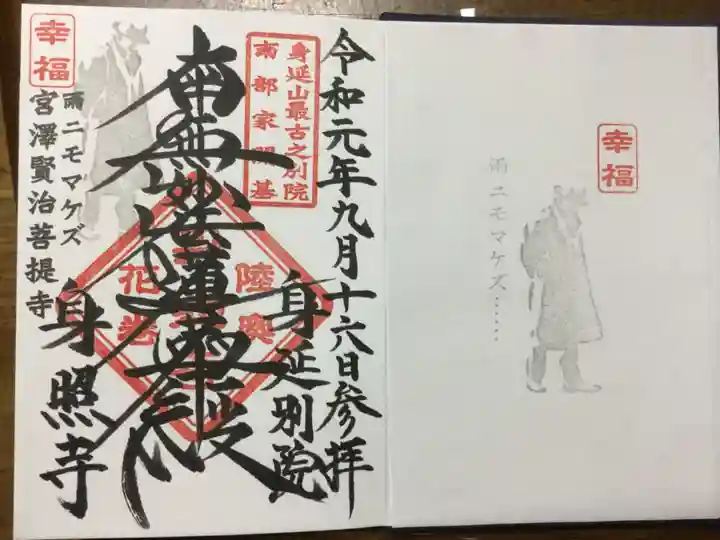 幸福
雨ニモマケズ……
令和元年九月十六日参拝
身延山最古之別院
南部家開基
身延別院
陸奥
花巻
南無妙法蓮華経
幸福
雨ニモマケズ
宮澤賢治菩提寺
身照寺